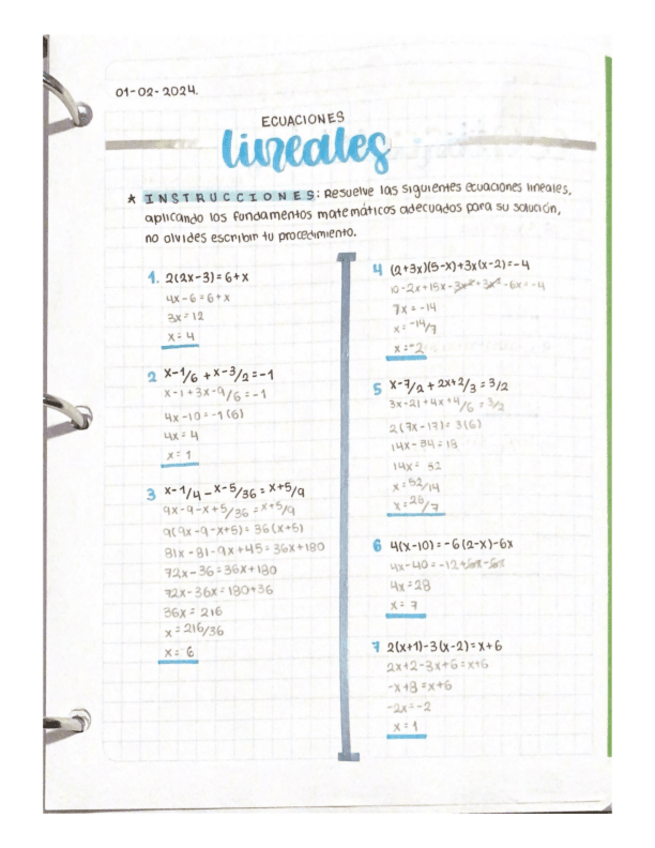 01-02-2024.
ECUACIONES
lineales
* INSTRUCCIONES: Resuelve las siguientes ecuaciones lineales,
aplicando los fundamentos matemáticos adecuados para su solución,
no olvides escribir tu procedimiento.
1. 2(2x-3)=6+x
4x-6=6+x
3x=12
x=4
2 x-1/6 + x-3/2=-1
x-1+3x-9/6=-1
4x-10=-1(6)
4x=4
x=1
3 x-1/4 - x-5/36 = x+5/9
9x-9-x+5/36=x+5/9
9(9x-9-x+5)=36(x+5)
81x-81-9x+45=36x+180
72x-36=36x+180
72x-36x=180+36
36x=216
x=216/36
x=6
4 (2+3x)(5-x)+3x(x-2)=-4
10-2x+15x-3x²+3x²-6x=-4
7x=-14
x=-14/7
x=-2
5 x-7/2 + 2x+2/3 = 3/2
3x-21+4x+4/6=3/2
2(7x-17)=3(6)
14x-34=18
14x=52
x=52/14
x=26/7
6 4(x-10)=-6(2-x)-6x
4x-40=-12+6x-6x
4x=28
x=7
7 2(x+1)-3(x-2)=x+6
2x+2-3x+6=x+6
-x+8=x+6
-2x=-2
x=1